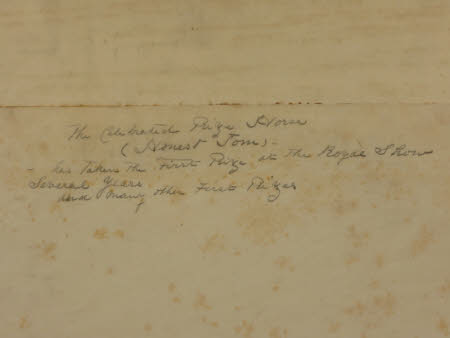 The Celebrated Prize Horse
(Honest Tom) -
- has taken the First Prize at the Royal Show
Several Years
and many other First Prizes